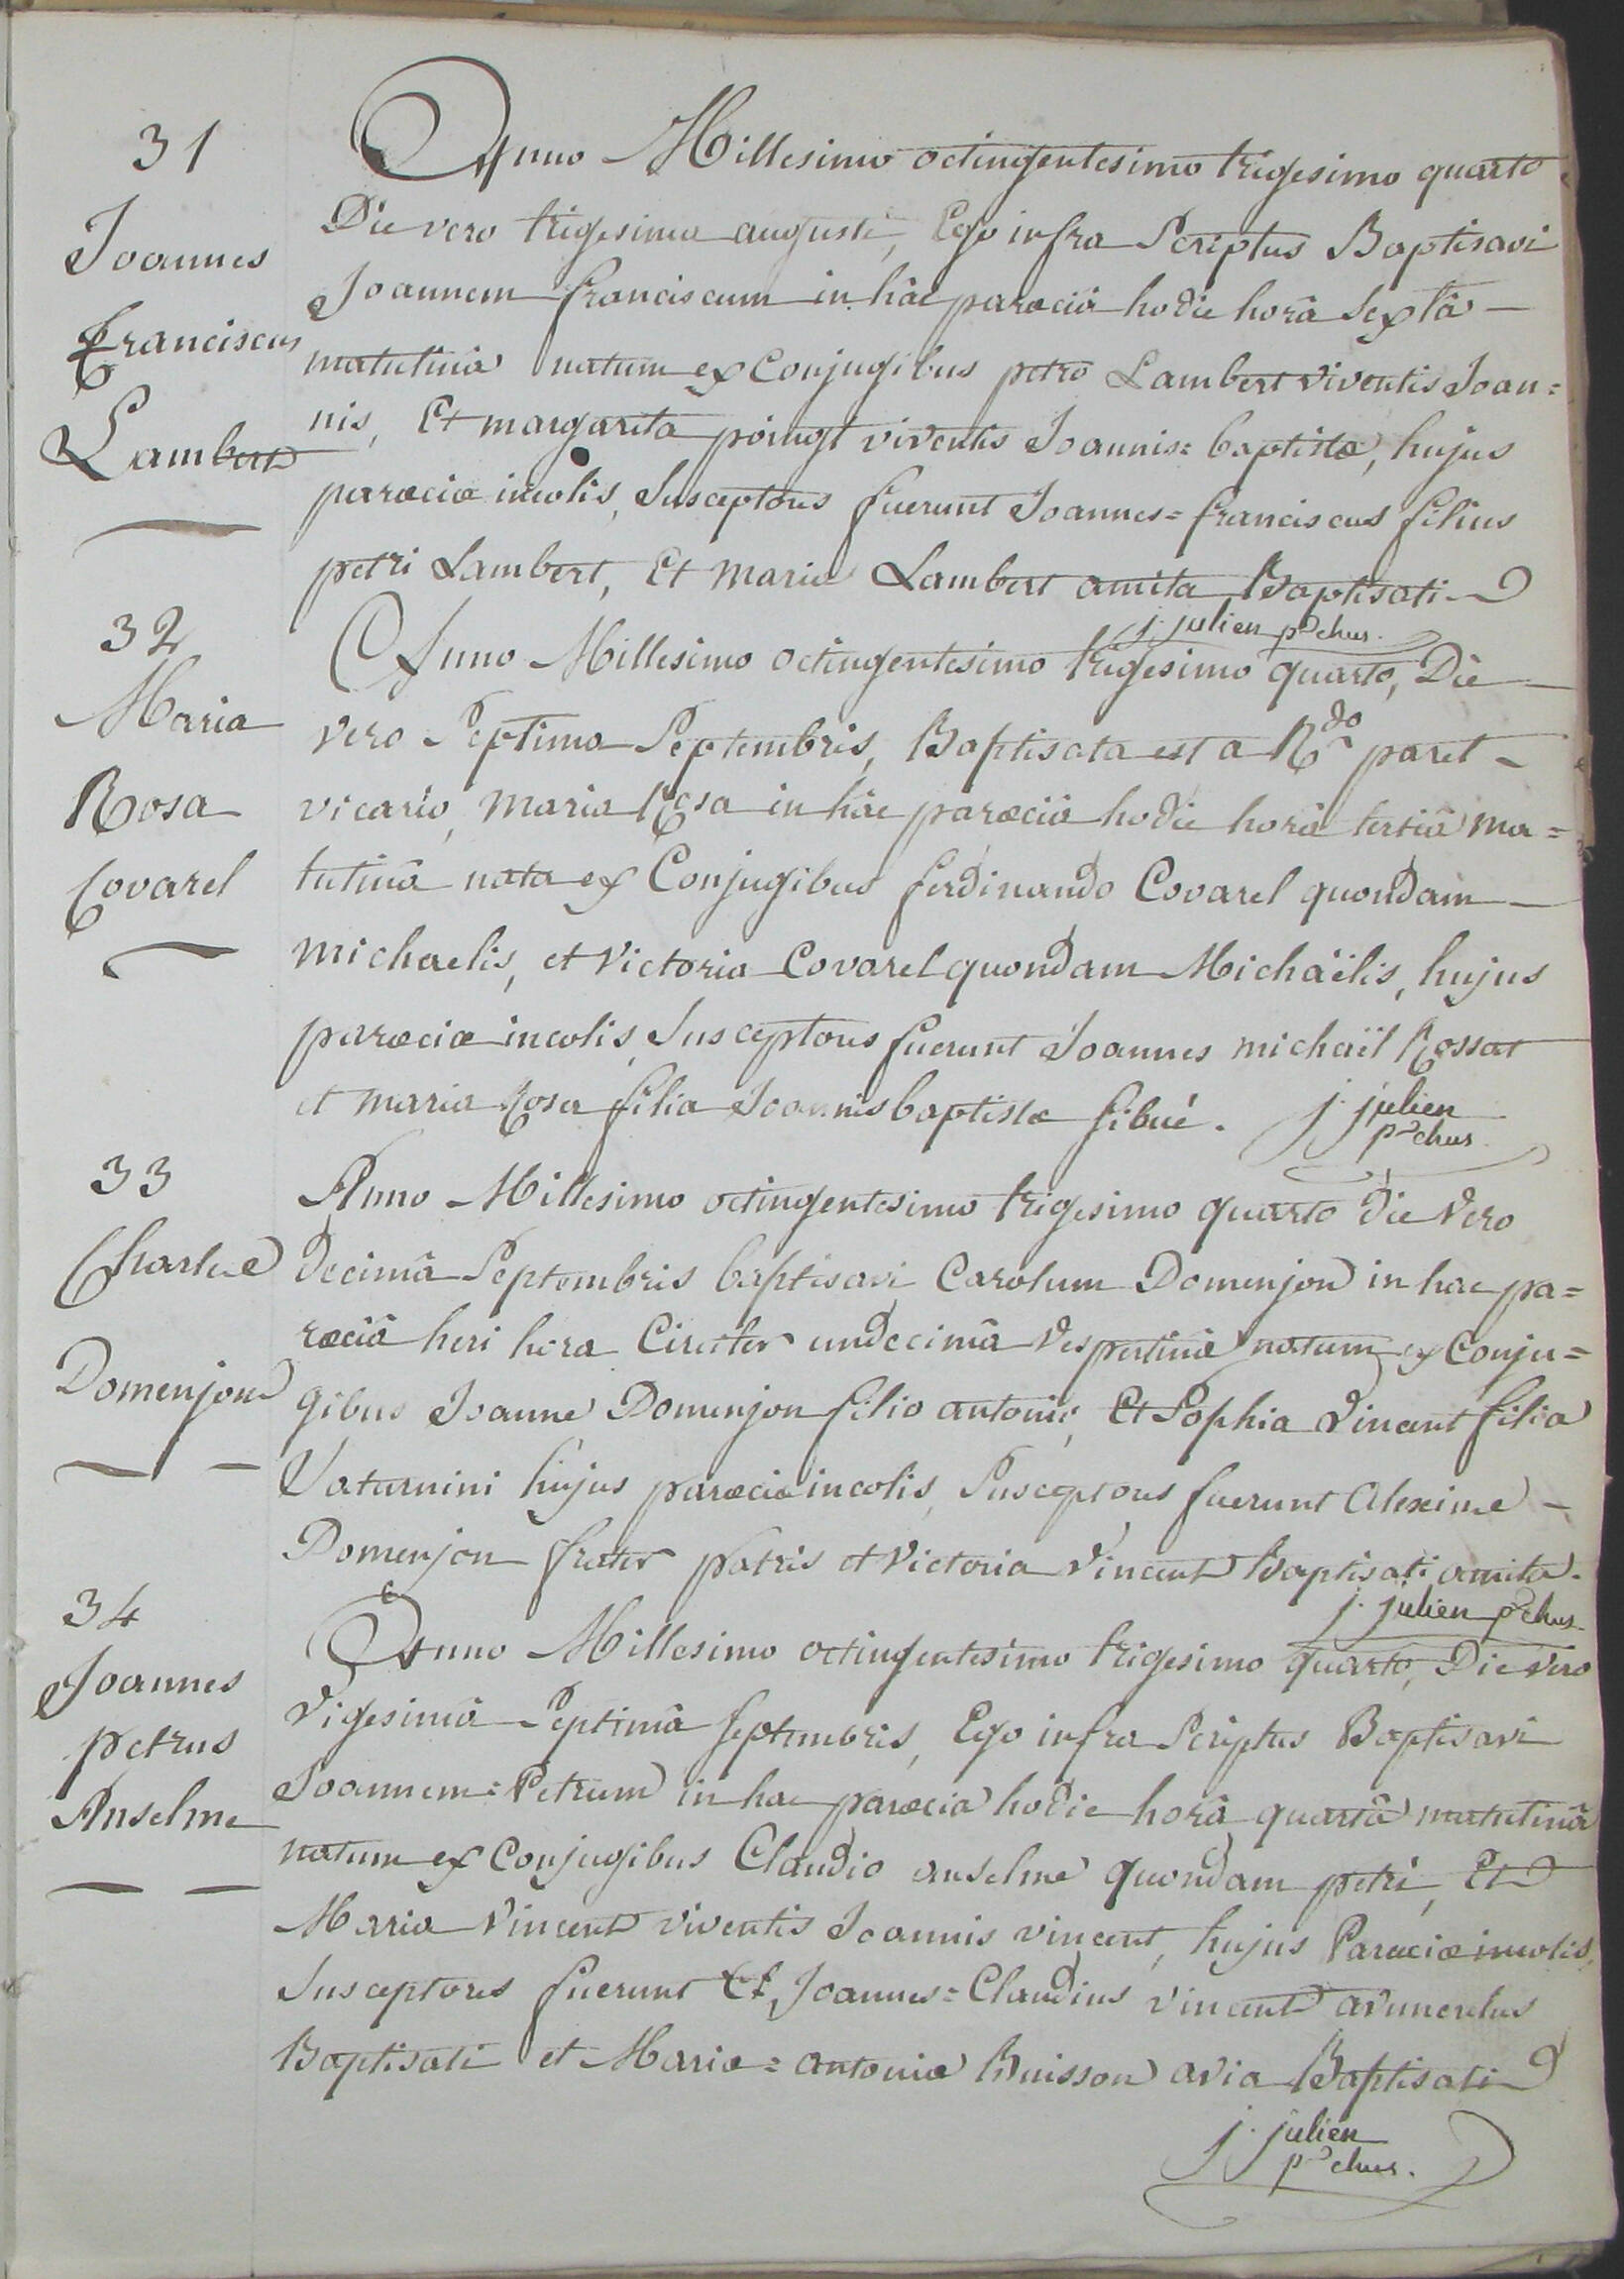 31
Joannes
Franciscus
Lambert
Anno Millesimo octingentesimo trigesimo quarto
Die vero trigesima augusti, Ego infra Scriptus Baptisavi
Joannem franciscum in hâc parœciâ hodie horâ Sextâ
matutinâ natum ex Conjugibus petro Lambert viventis Joan=
nis, Et margarita poingt viventis Joannis=baptistæ, hujus
parœciæ incolis, Susceptores fuerunt Joannes=franciscus filius
petri Lambert, Et maria Lambert amita Baptisati
j. julien p.chus.
32
Maria
Rosa
Covarel
Anno Millesimo octingentesimo trigesimo quarto, Die
vero Septima Septembris, Baptisata est a Rdo paret
vicario, maria Rosa in hâc parœciâ hodie horâ tertiâ ma=
tutinâ nata ex Conjugibus ferdinando Covarel quondam
michaelis, et victoria Covarel quondam Michaëlis, hujus
parœciæ incolis, Susceptores fuerunt Joannes michaël Rossat
et maria Rosa filia Joannis baptistæ fibué.
j. julien
p.chus
33
Charle
Domenjon
Anno Millesimo octingentesimo trigesimo quarto die vero
decimâ Septembris baptisavi Carolum Domenjon in hac pa=
rœciâ heri hora Circiter undecimâ vespertinâ natum ex Conju=
gibus Joanne Domenjon filio antonii, Et Sophia vincent filia
Saturnini hujus parœciæ incolis, Susceptores fuerunt Alexime
Domenjon frater patris et victoria vincent Baptisati amita.
j. julien p.chus
34
Joannes
petrus
Anselme
Anno Millesimo octingentesimo trigesimo quarto, Die vero
vigesimâ Septimâ septembris, Ego infra Scriptus Baptisavi
Joannem=Petrum in hac parœcia hodie horâ quartâ matutinâ
natum ex Conjugibus Claudio anselme quondam petri, Et
Maria vincent viventis Joannis vincent, hujus Parœciæ incolis,
Susceptores fuerunt Et Joannes=Claudius vincent avunculus
Baptisati et Maria=antonia Buisson avia Baptisati
j. julien
p.chus.